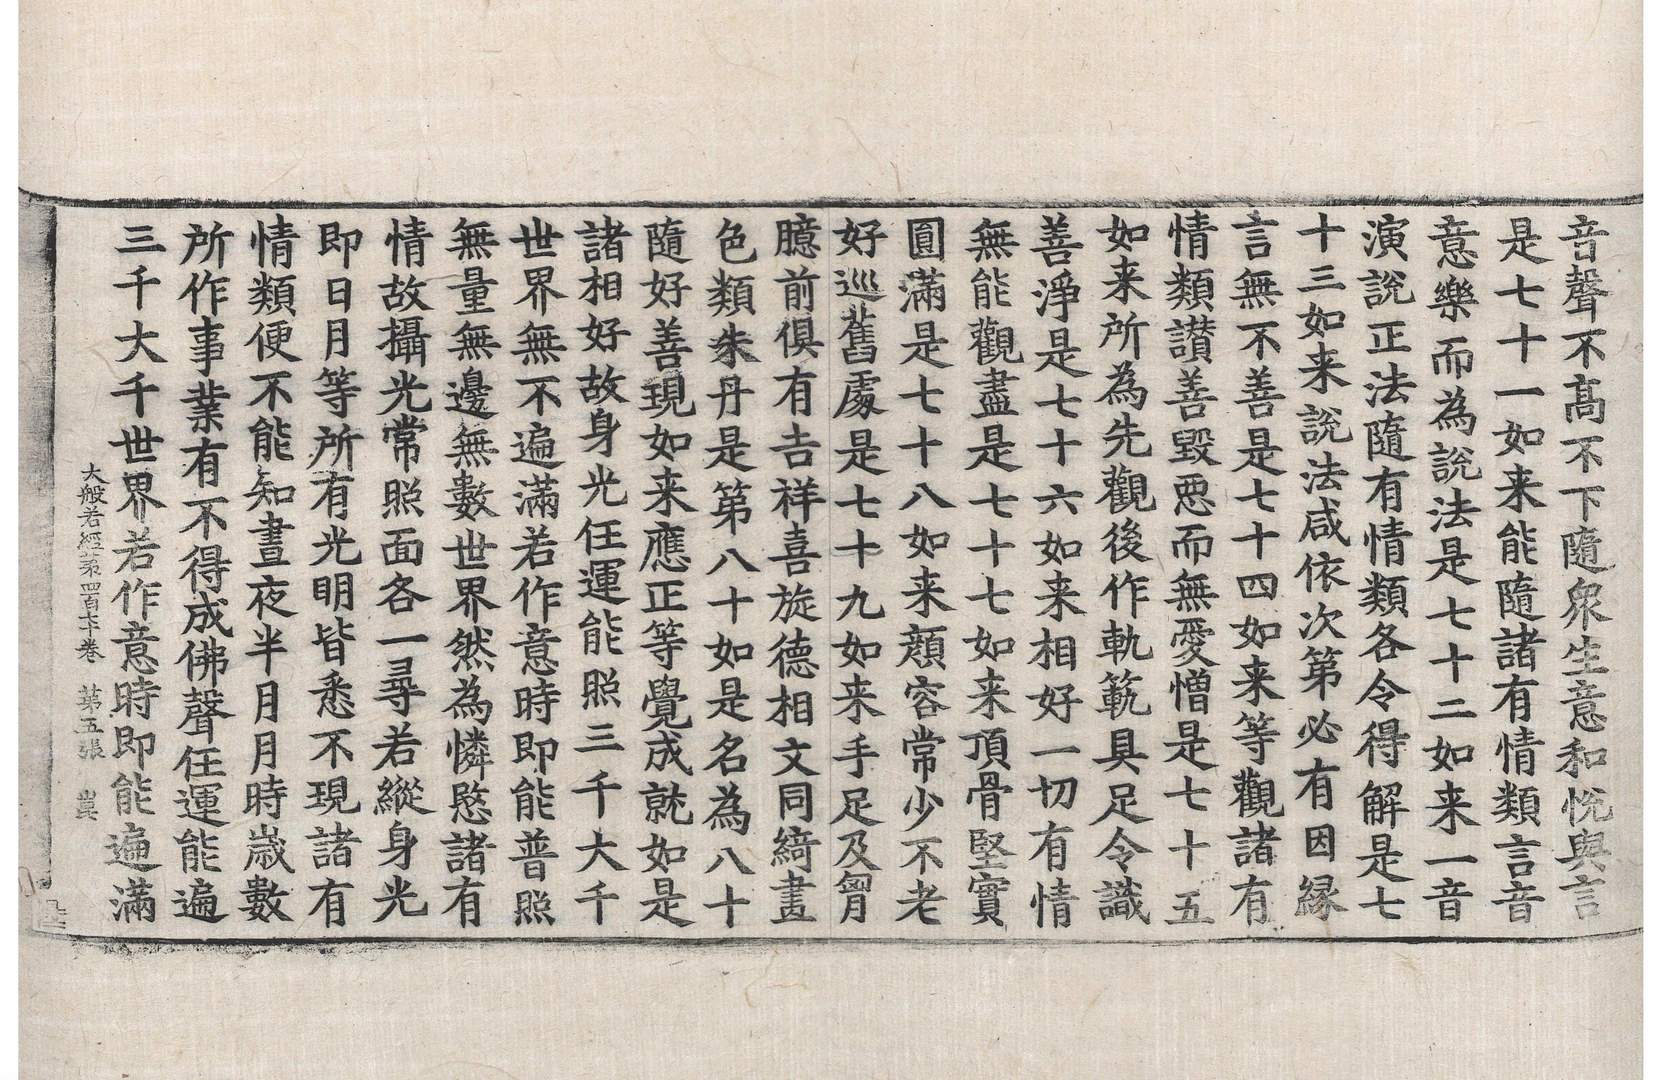 音聲不高不下隨衆生意和恱與言
是七十一如来能隨諸有情類言音
意樂而為說法是七十二如来一音
演說正法隨有情類各令得解是七
十三如来說法咸依次第必有因緣
言無不善是七十四如来等觀諸有
情類讃善毀惡而無愛憎是七十五
如来所為先觀後作軌範具足令識
善淨是七十六如来相好一切有情
無能觀盡是七十七如来頂骨堅實
圓滿是七十八如来顔容常少不老
好巡舊處是七十九如来手足及胷
臆前俱有吉祥喜旋德相文同綺畫
色類朱丹是第八十如是名為八十
隨好善現如来應正等覺成就如是
諸相好故身光任運能照三千大千
世界無不遍滿若作意時即能普照
無量無邊無數世界然為憐愍諸有
情故攝光常照面各一尋若縱身光
即日月等所有光明皆悉不現諸有
情類便不能知晝夜半月月時歲數
所作事業有不得成佛聲任運能遍
三千大千世界若作意時即能遍滿
大般若經第四百七十卷 第五張 崑